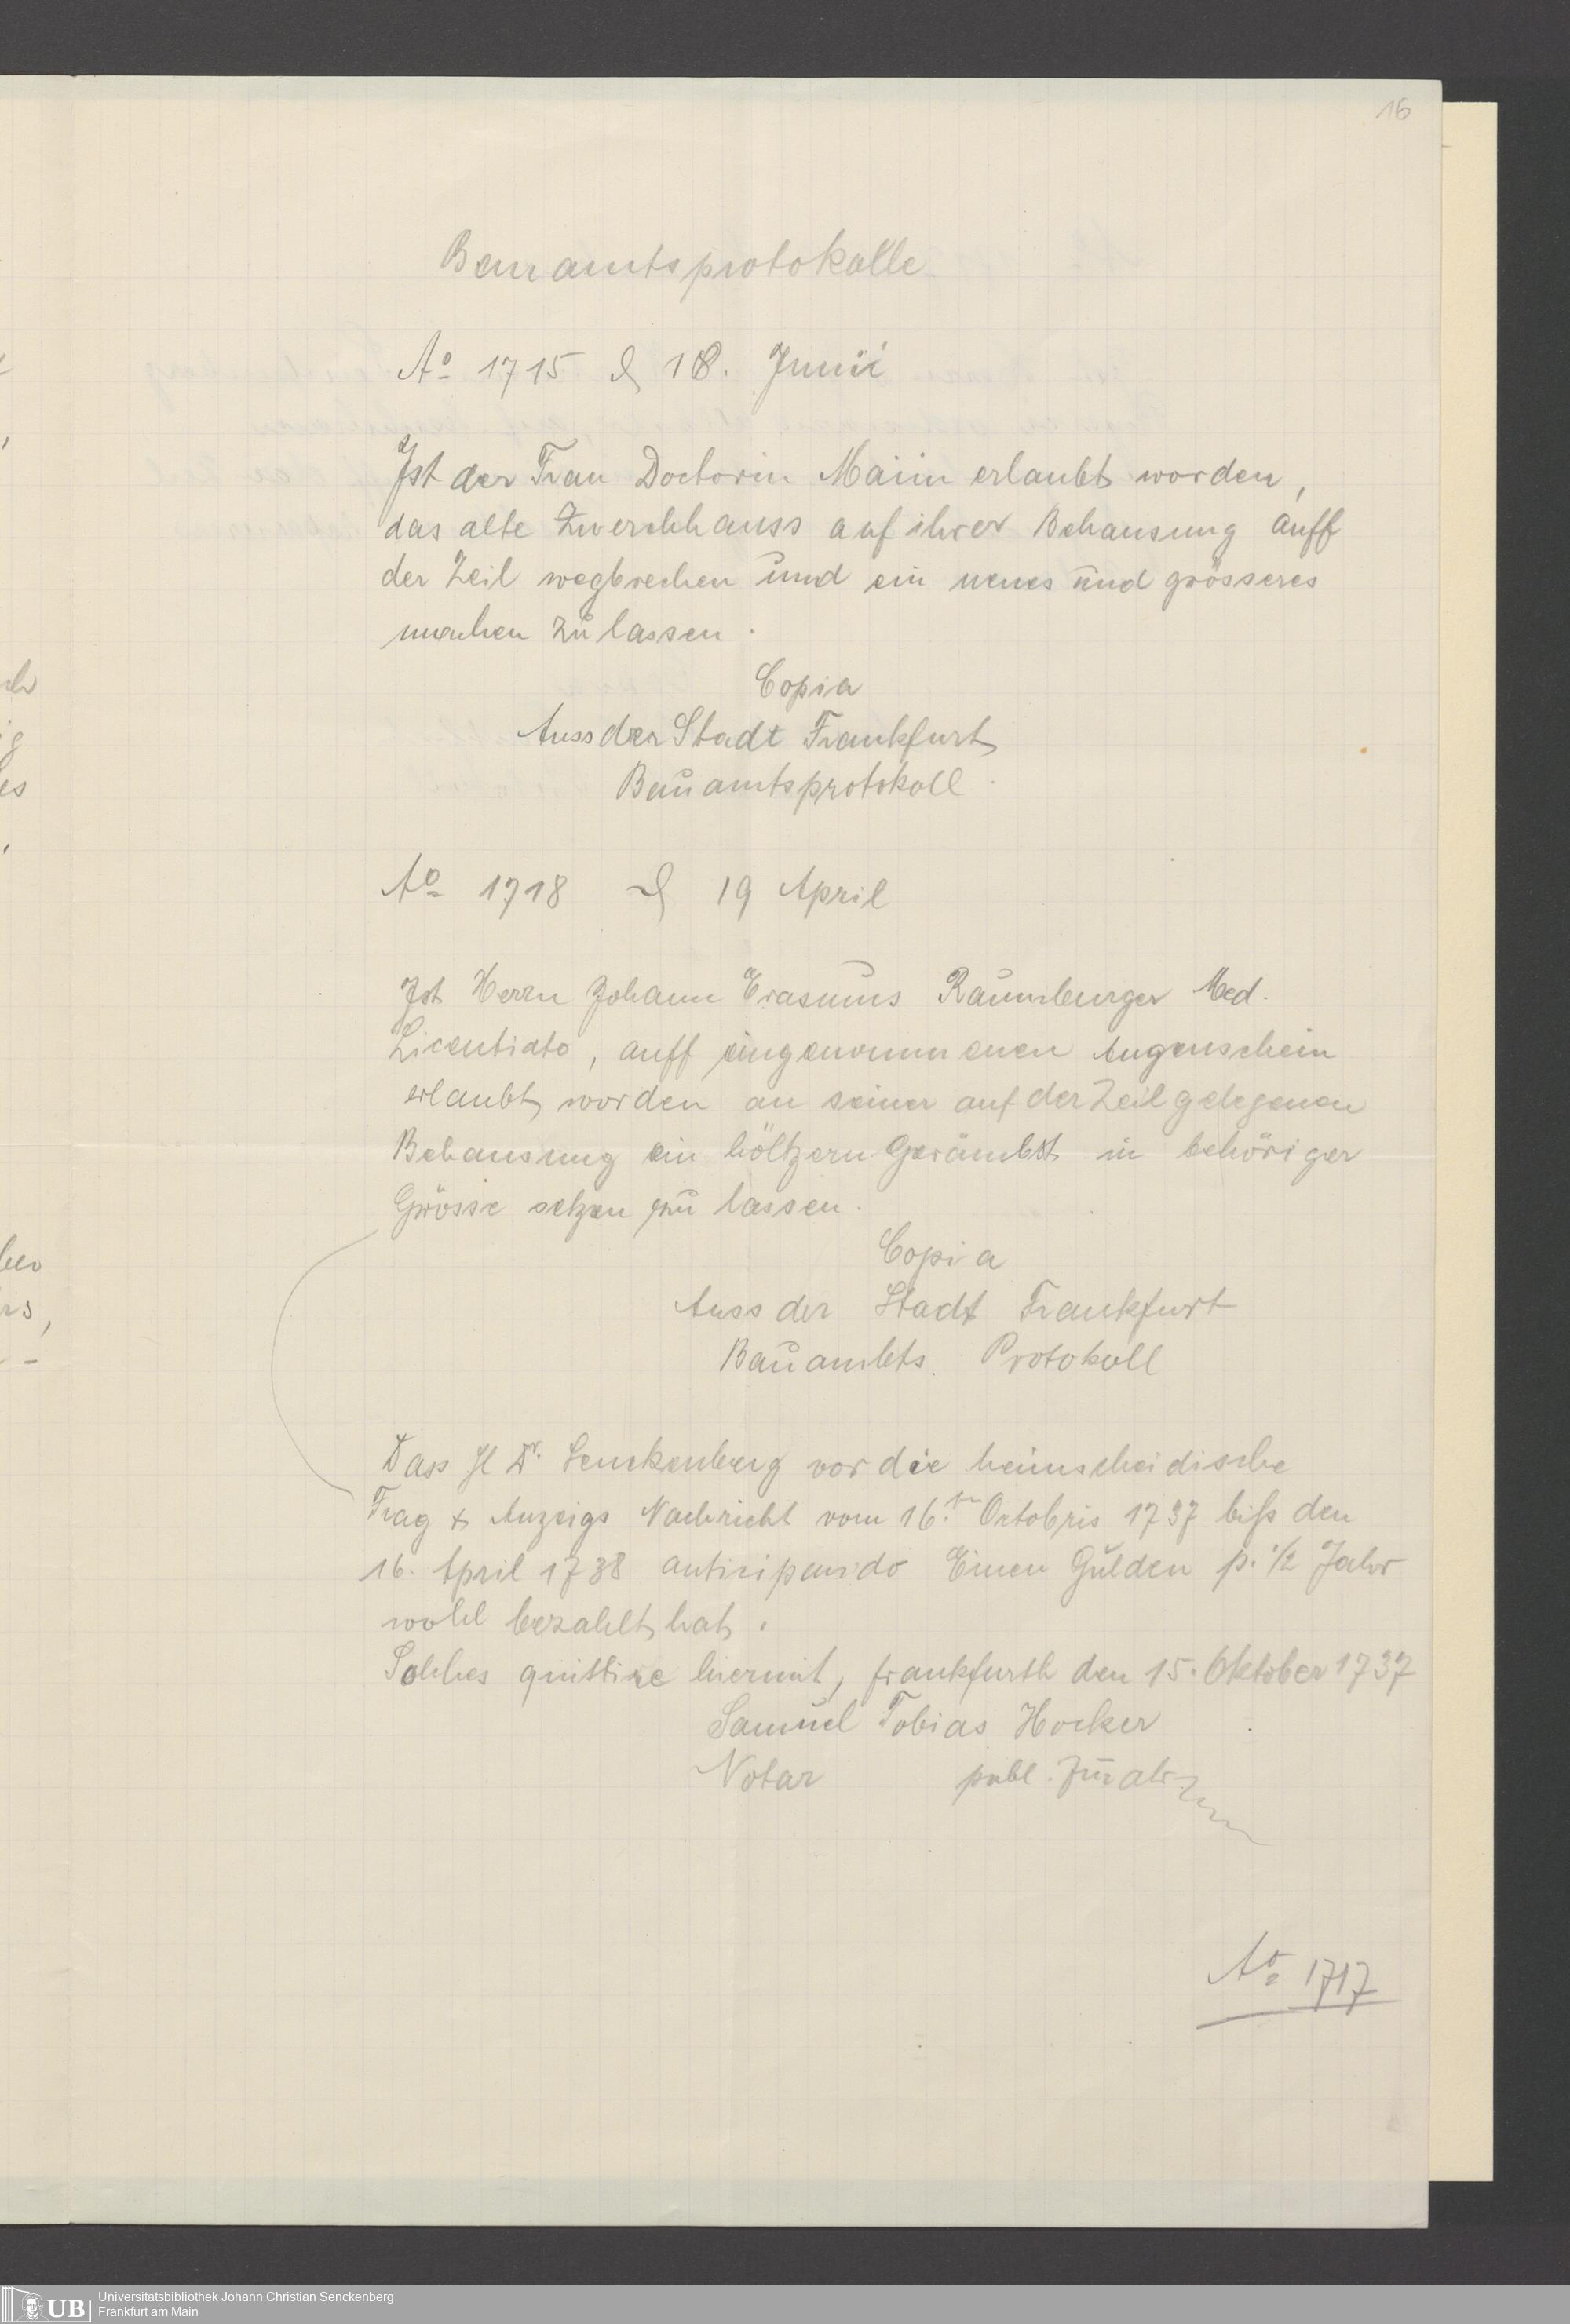 16
Bauamtsprotokolle
Ao 1715 d 18. Junii
Jst der Frau Doctorin Maiin erlaubt worden,
das alte Zwerchhauss auf ihrer Behausung auff
der Zeil wegbrechen und ein neues und grösseres
machen zu lassen.
Copia
Auss der Stadt Frankfurt
Bauamtsprotokoll
Ao 1718 d 19 April
Jst Herrn Johann Erasmus Raumburger Med.
Licentiato, auff eingenommenen Augenschein
erlaubt worden an seiner auf der Zeil gelegenen
Behausung ein höltzern Gerämbst in behöriger
Grösse setzen zu lassen.
Copia
Auss der Stadt Frankfurt
Bauambts Protokoll
Dass H Dr. Senckenberg vor die heimscheidische
Frag & Anzeigs Nachricht vom 16.ten Octobris 1737 biß den
16. April 1738 anticipando Einen Gulden p. 1/2 Jahr
wohl bezahlt hat.
Solches quittire hiermit, frankfurth den 15. Oktober 1737
Samuel Tobias Hocker
Notar publ. Jurat
Ao 1717
UB
Universitätsbibliothek Johann Christian Senckenberg
Frankfurt am Main